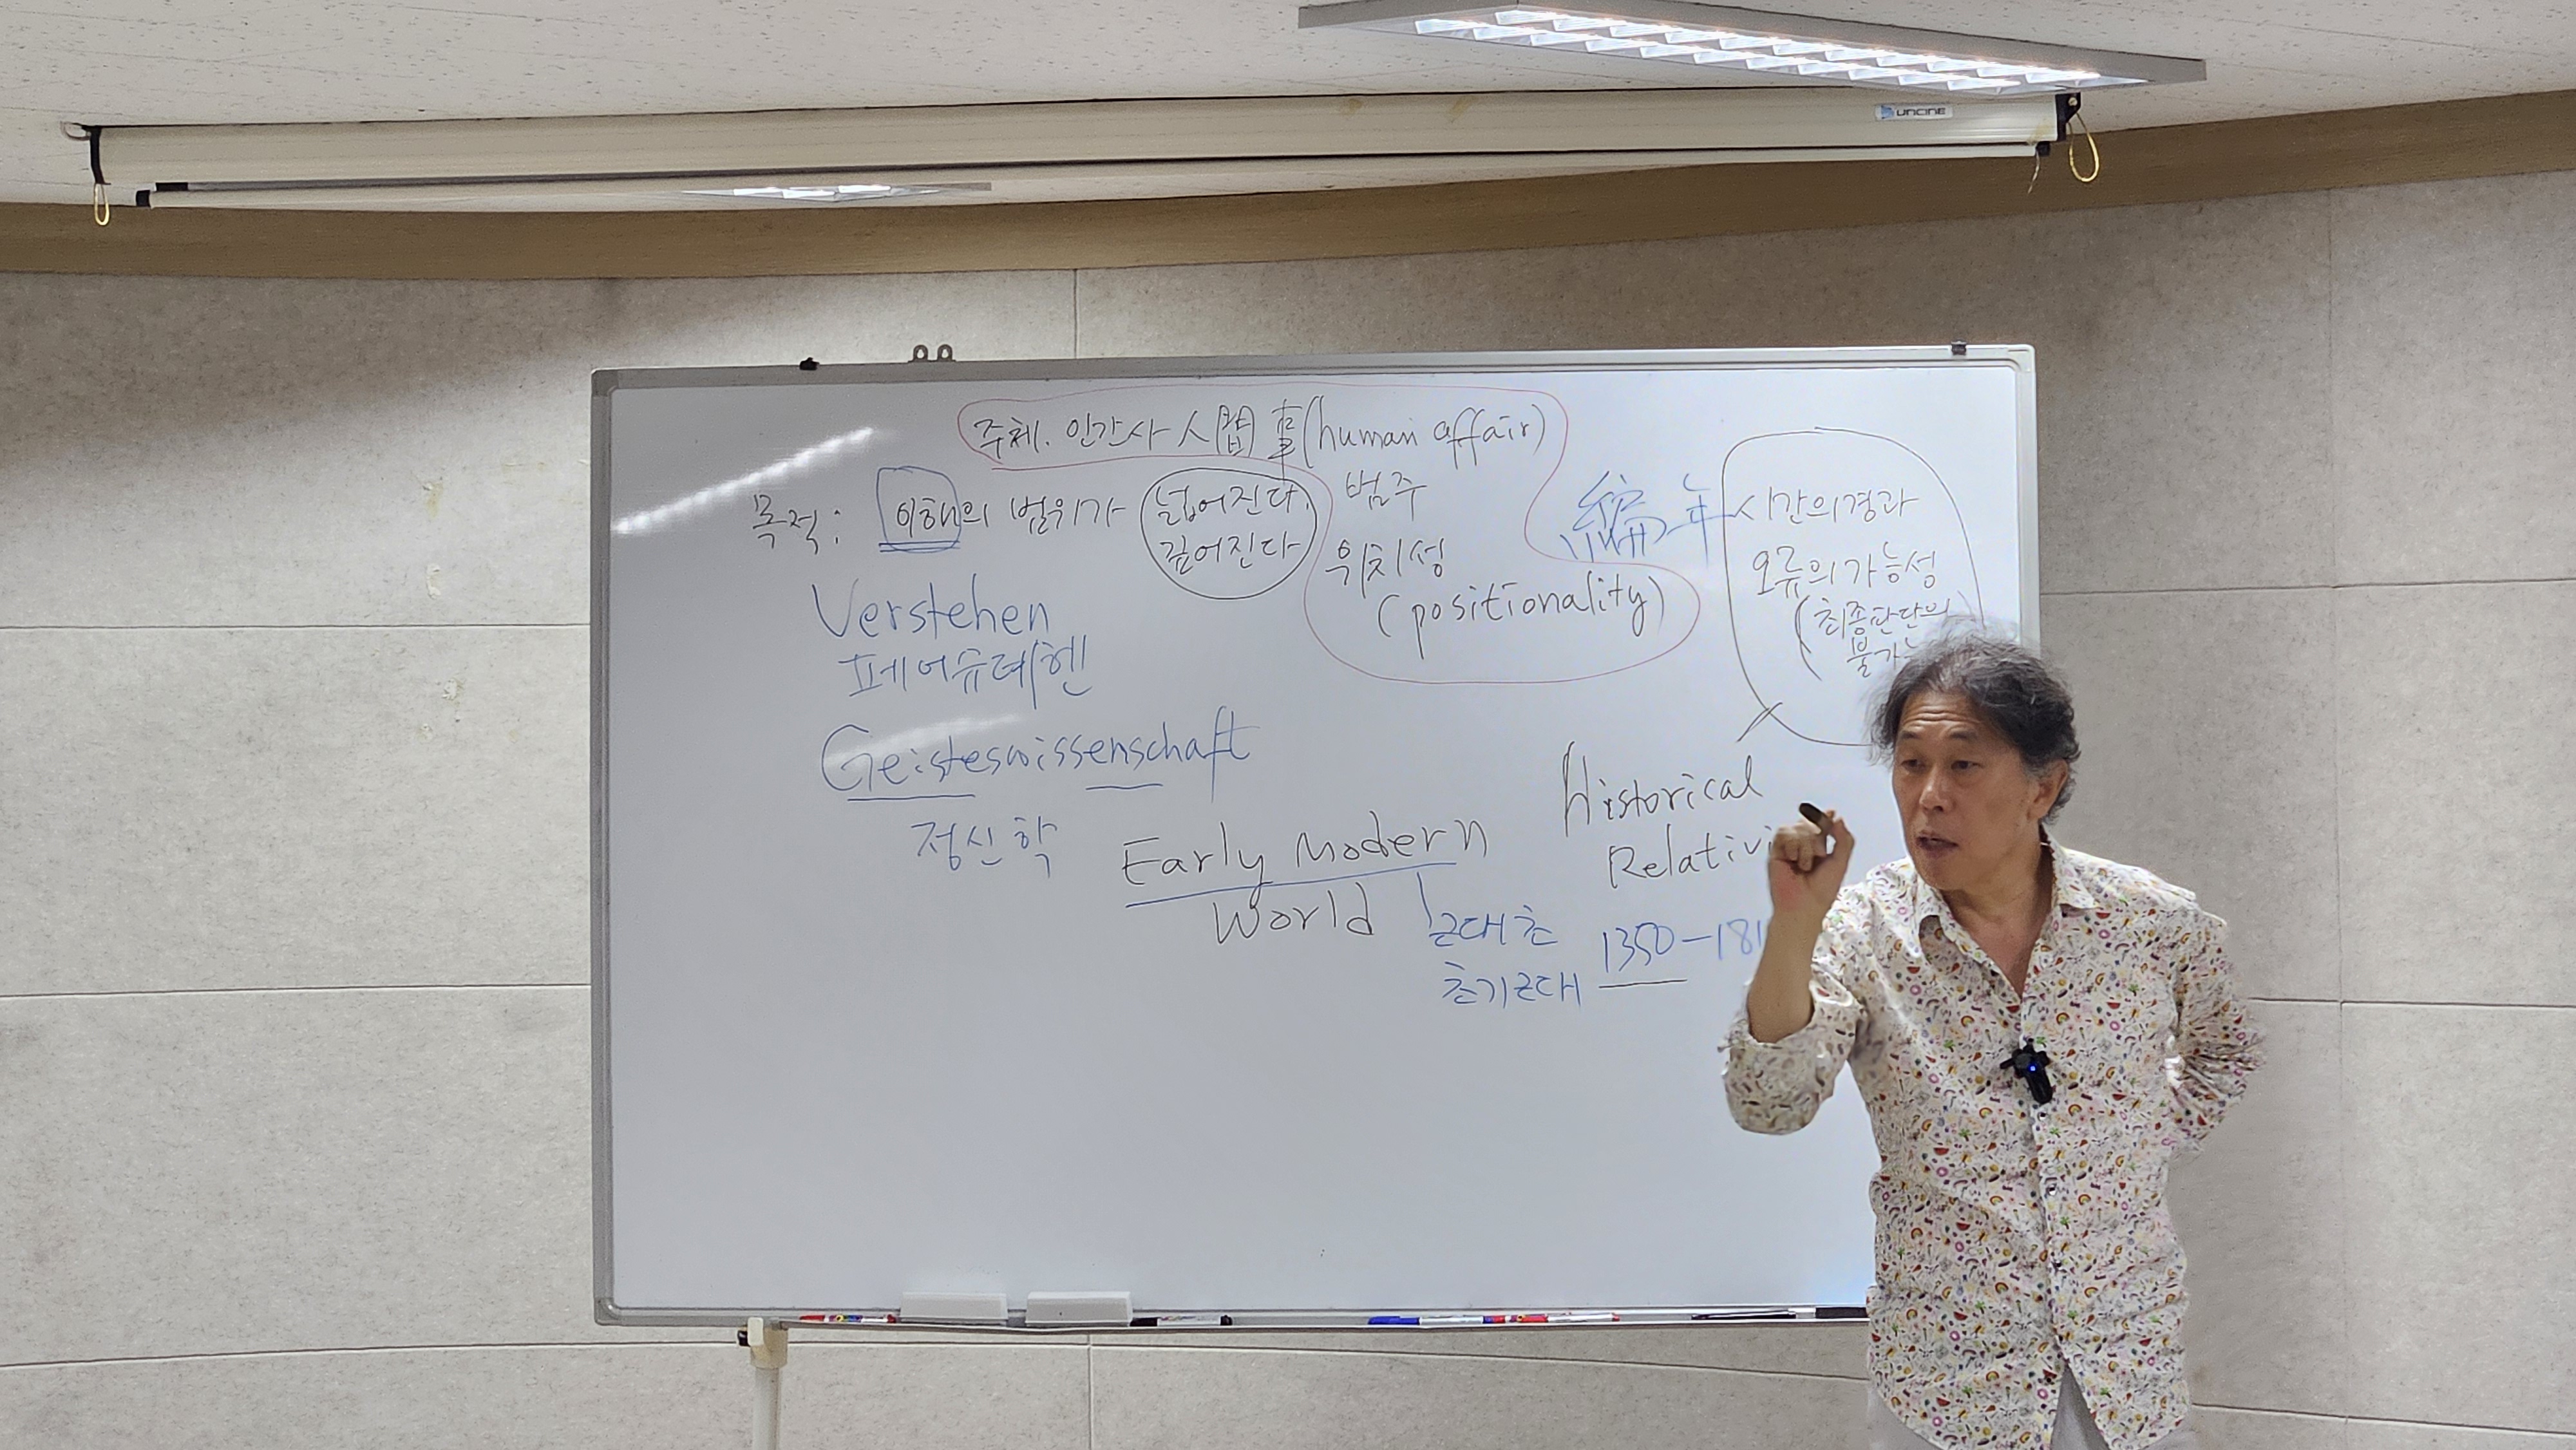 UNCINE
주체. 인간사 人間事(human affair)
목적: 이해의 범위가 넓어진다.
깊어진다
범주
위치성
(positionality)
編年
시간의경과
오류의가능성
(최종판단의
불가
Verstehen
페어슈테헨
Geisteswissenschaft
정신학
Historical
Relativi
Early Modern
World
근대초
초기근대
1350-181